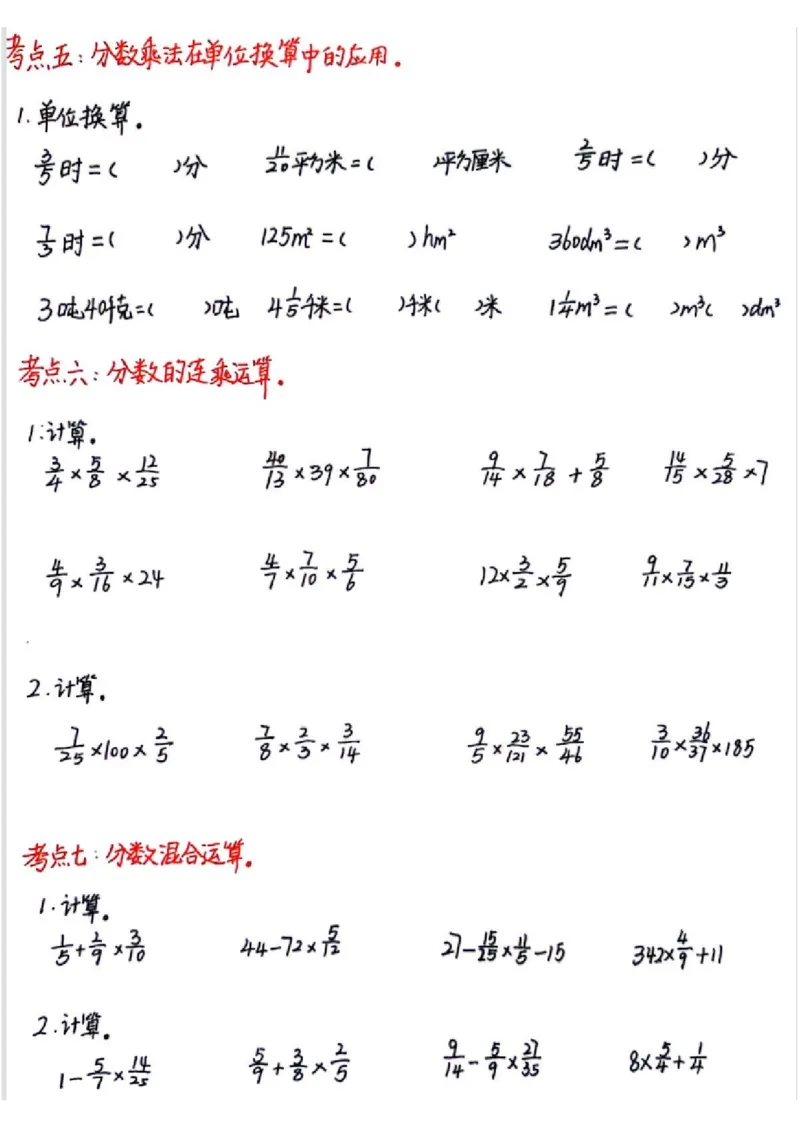 考点五：分数乘法在单位换算中的应用。
1.单位换算。
3/5时=( )分 11/20平方米=( )平方厘米 2/5时=( )分
7/3时=( )分 125m²=( )hm² 360dm³=( )m³
3吨40千克=( )吨 4 1/5千米=( )千米( )米 1 1/4m³=( )m³( )dm³
考点六：分数的连乘运算。
1.计算。
3/4×5/8×12/25 40/13×39×7/80 9/14×7/18+5/8 14/15×5/28×7
4/9×3/16×24 4/7×7/10×5/6 12×3/2×5/9 9/11×7/15×11/3
2.计算。
7/25×100×2/5 7/8×2/3×3/14 9/5×23/121×55/46 3/10×36/37×185
考点七：分数混合运算。
1.计算。
1/5+2/9×3/10 44-72×5/12 27-15/25×11/5-15 342×4/9+11
2.计算。
1-5/7×14/25 5/9+3/8×2/5 9/14-5/9×27/35 8×5/4+1/4